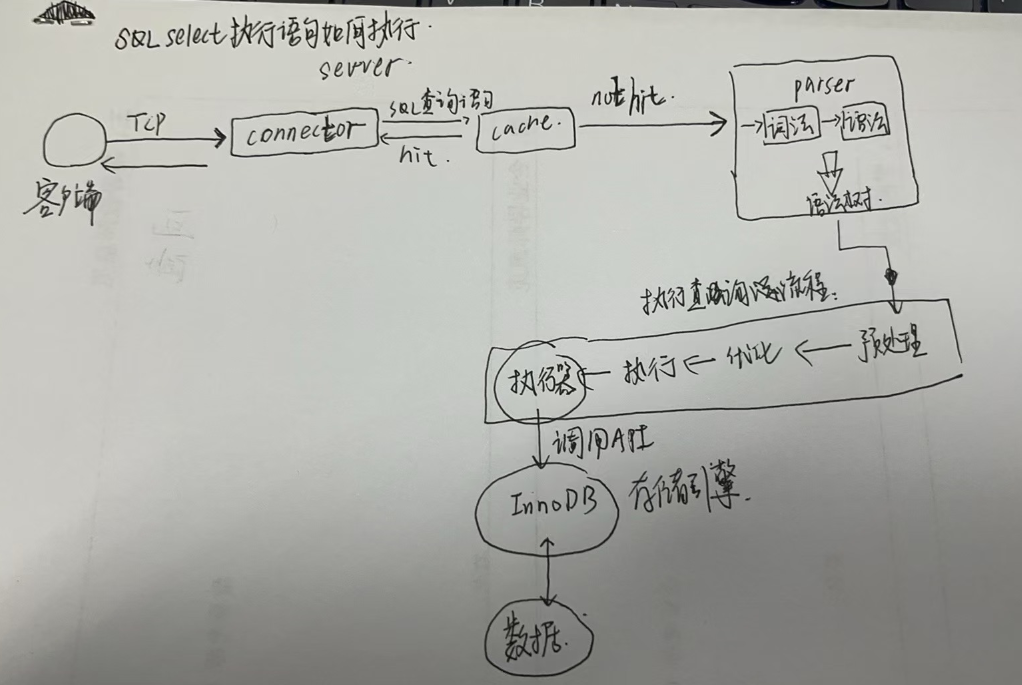 SQL select 执行语句如何执行.
server.
客户端
TCP
connector
SQL查询语句
hit.
cache.
not hit.
parser
词法
语法
语法树.
执行查询流程:
预处理
优化
执行
执行器
调用API
InnoDB
存储引擎.
数据.